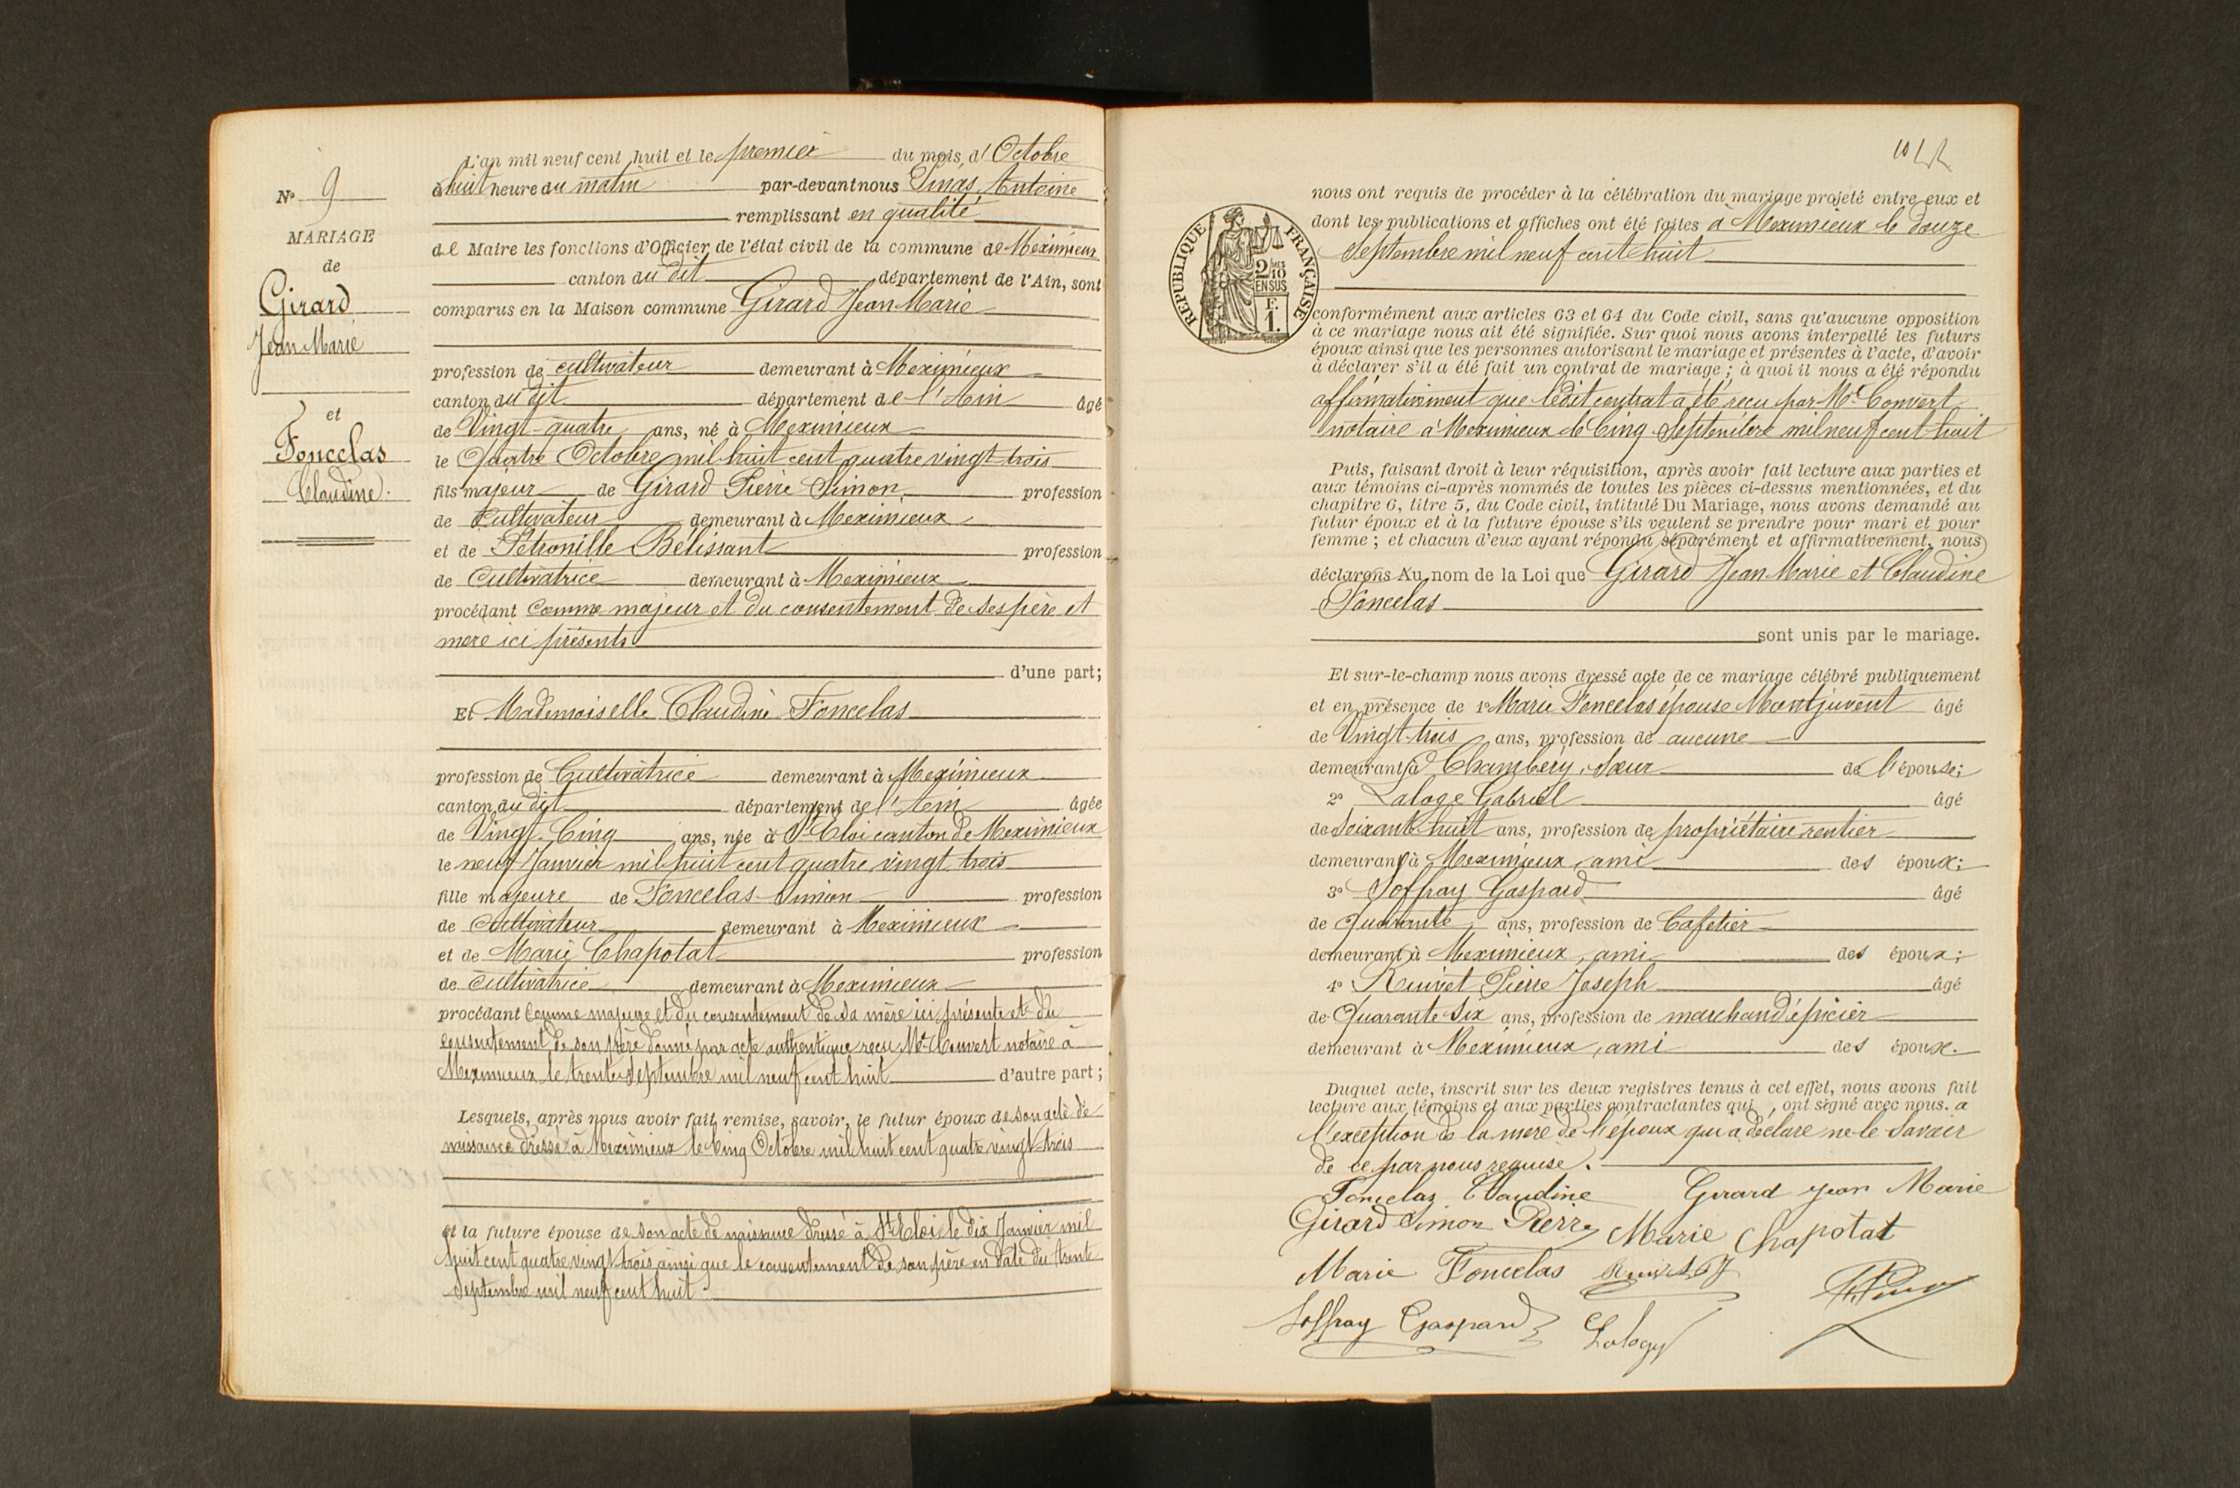 N° 9
MARIAGE
de
Girard
Jean Marie
et
Foncelas
Claudine.
L'an mil neuf cent huit et le premier du mois d'Octobre
à huit heure du matin par-devant nous Antoine
remplissant en qualité
de Maire les fonctions d'Officier de l'état civil de la commune de Meximieux
canton du dit département de l'Ain, sont
comparus en la Maison commune Girard Jean Marie
profession de cultivateur demeurant à Meximieux
canton du dit département de l'Ain âgé
de Vingt-quatre ans, né à Meximieux
le Quatre Octobre mil huit cent quatre vingt trois
fils majeur de Girard Pierre Simon, profession
de Cultivateur demeurant à Meximieux
et de Pétronille Bélissant profession
de Cultivatrice demeurant à Meximieux
procédant Comme majeur et du consentement de ses père et
mère ici présents
d'une part;
Et Mademoiselle Claudine Foncelas
profession de Cultivatrice demeurant à Meximieux
canton du dit département de l'Ain âgée
de Vingt-Cinq ans, née à St Eloi canton de Meximieux
le neuf Janvier mil huit cent quatre vingt trois
fille majeure de Foncelas Simon profession
de Cultivateur demeurant à Meximieux
et de Marie Chapotat profession
de Cultivatrice demeurant à Meximieux
procédant Comme majeure et du consentement de sa mère ici présente et du
consentement de son père donné par acte authentique reçu Me Convert notaire à
Meximieux le trente Septembre mil neuf cent huit d'autre part;
Lesquels, après nous avoir fait remise, savoir, le futur époux de son acte de
naissance dressé à Meximieux le Cinq Octobre mil huit cent quatre vingt-trois
et la future épouse de son acte de naissance dressé à St Eloi le dix Janvier mil
huit cent quatre vingt trois ainsi que le consentement de son père en date du trente
Septembre mil neuf cent huit
10
RÉPUBLIQUE FRANÇAISE
2/10
EN SUS
F.
1.
nous ont requis de procéder à la célébration du mariage projeté entre eux et
dont les publications et affiches ont été faites à Meximieux le douze
Septembre mil neuf cent huit
conformément aux articles 63 et 64 du Code civil, sans qu'aucune opposition
à ce mariage nous ait été signifiée. Sur quoi nous avons interpellé les futurs
époux ainsi que les personnes autorisant le mariage et présentes à l'acte, d'avoir
à déclarer s'il a été fait un contrat de mariage ; à quoi il nous a été répondu
affirmativement que ledit contrat a été reçu par Me Convert
notaire à Meximieux le Cinq Septembre mil neuf cent huit
Puis, faisant droit à leur réquisition, après avoir fait lecture aux parties et
aux témoins ci-après nommés de toutes les pièces ci-dessus mentionnées, et du
chapitre 6, titre 5, du Code civil, intitulé Du Mariage, nous avons demandé au
futur époux et à la future épouse s'ils veulent se prendre pour mari et pour
femme ; et chacun d'eux ayant répondu séparément et affirmativement, nous
déclarons Au nom de la Loi que Girard Jean Marie et Claudine
Foncelas
sont unis par le mariage.
Et sur-le-champ nous avons dressé acte de ce mariage célébré publiquement
et en présence de 1° Marie Foncelas épouse Montjuvent âgé
de Vingt-trois ans, profession de aucune
demeurant à Chambéry, sœur de l'épouse;
2° Laloge Gabriel âgé
de Soixante huit ans, profession de propriétaire rentier
demeurant à Meximieux, ami des époux;
3° Joffray Gaspard âgé
de Quarante ans, profession de Cafetier
demeurant à Meximieux, ami des époux;
4° Pierre Joseph âgé
de Quarante Six ans, profession de marchand épicier
demeurant à Meximieux, ami des époux.
Duquel acte, inscrit sur les deux registres tenus à cet effet, nous avons fait
lecture aux témoins et aux parties contractantes qui, ont signé avec nous. a
l'exception de la mère de l'époux qui a déclaré ne le savoir
de ce par nous requise.
Foncelas Claudine Girard Jean Marie
Girard Simon Pierre Marie Chapotat
Marie Foncelas
Joffray Gaspard